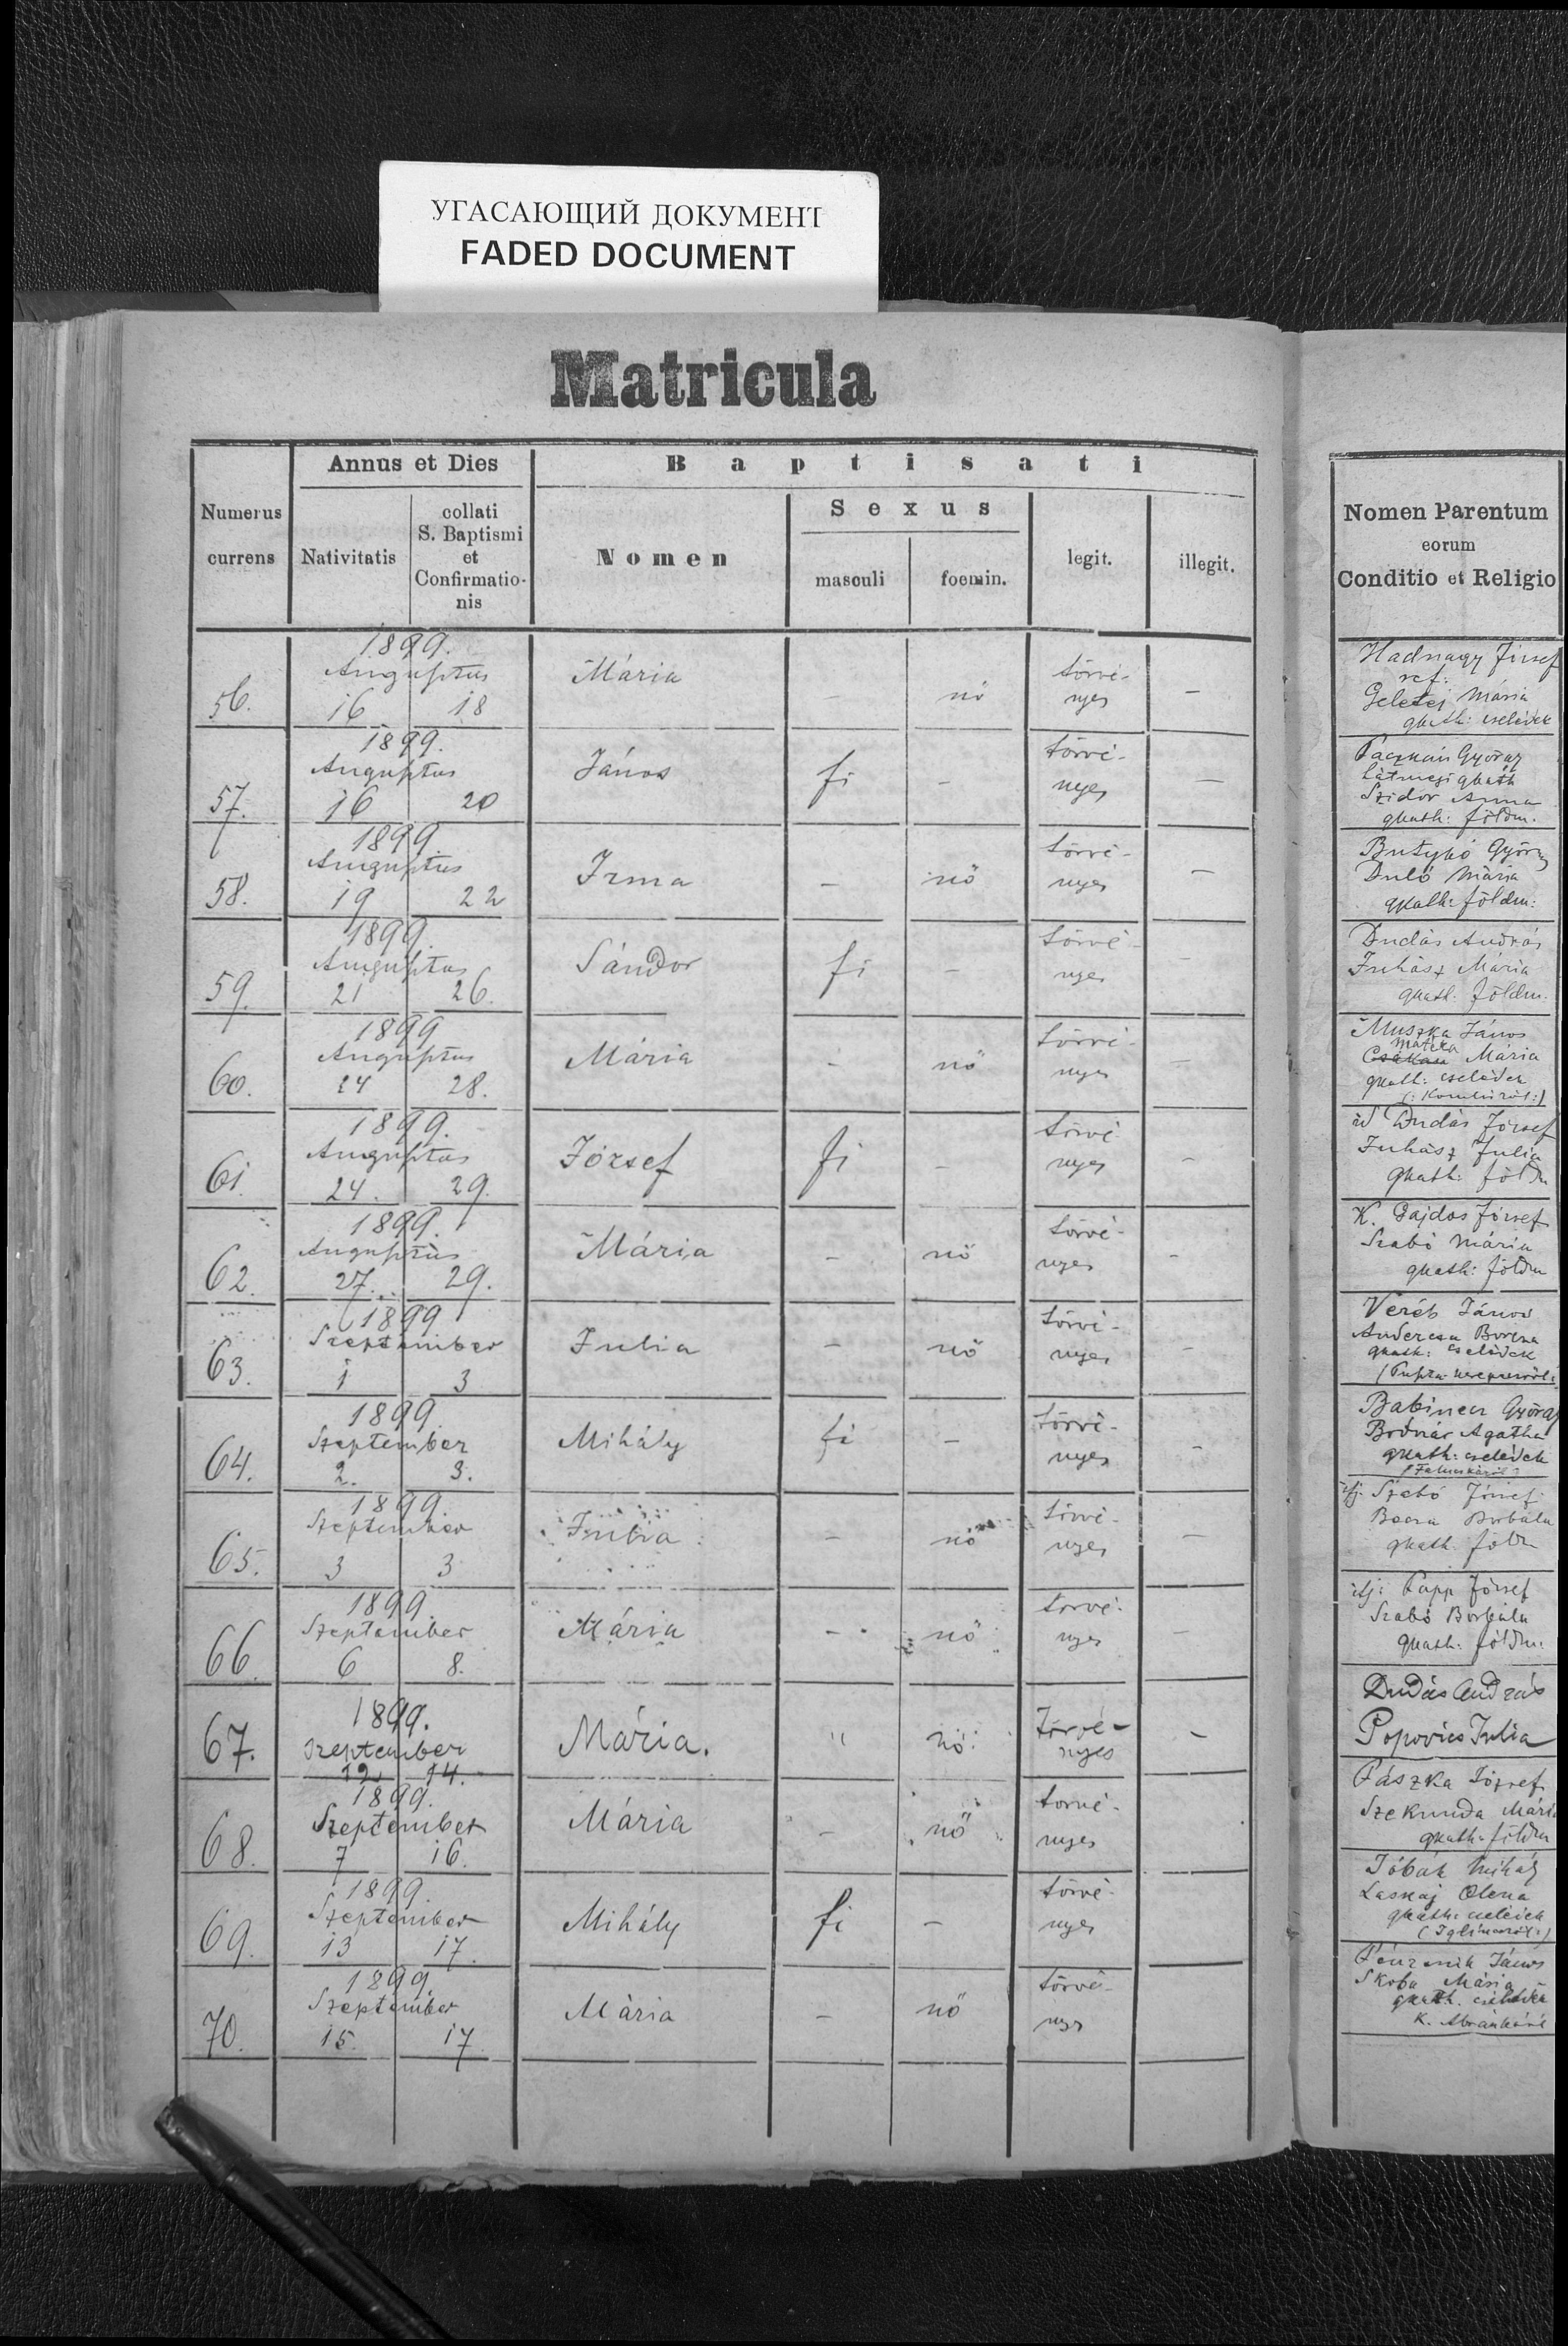 УГАСАЮЩИЙ ДОКУМЕНТ
FADED DOCUMENT
Matricula
Numerus currens
Annus et Dies
Nativitatis
collati
S. Baptismi
et
Confirmatio-
nis
Baptisati
Nomen
Sexus
masculi
foemin.
legit.
illegit.
Nomen Parentum
eorum
Conditio et Religio
1899.
Augusztus
56. 16 18 Mária – nő törvé-
nyes –
Hadnagy József
ref:
Geletej Mária
gkath: cselédek
1899.
Augusztus
57. 16 20 János fi – törvé-
nyes –
György
gkath
Szidor Anna
gkath: földm.
1899.
Augusztus
58. 19 22 Irma – nő törvé-
nyes –
Butykó György
Duló Mária
gkath: földm:
1899.
Augusztus
59. 21 26. Sándor fi – törvé-
nyes –
Dudás András
Juhász Mária
gkath. földm.
1899
Augusztus
60. 24 28. Mária – nő törvé-
nyes –
Muszka János
Mária
gkath: cselédek
1899.
Augusztus
61. 24. 29. József fi – törvé-
nyes –
id Dudás József
Juhász Julia
gkath: földm
1899.
Augusztus
62. 27. 29. Mária – nő törvé-
nyes –
K. Gajdos József
Szabó Mária
gkath: földm
1899
Szeptember
63. 1 3 Julia – nő törvé-
nyes –
Veréb János
gkath: cselédek
1899
Szeptember
64. 2. 3. Mihály fi – törvé-
nyes –
Babinecz György
Bodnár Agatha
gkath: cselédek
1899
Szeptember
65. 3 3 Julia – nő törvé-
nyes –
ifj. Szabó József
Borbála
gkath. földm
1899
Szeptember
66. 6 8. Mária – nő törvé-
nyes –
ifj: Papp József
Szabó Borbála
gkath: földm:
1899.
Szeptember
67. 12 14. Mária. " nő törvé-
nyes –
Dudás András
Popovics Julia
1899.
Szeptember
68. 7 16. Mária – nő törvé-
nyes
Pászka József
Szekunda Mária
gkath: földm
1899.
Szeptember
69. 13 17. Mihály fi – törvé-
nyes
Jóbák Mihály
Laskaj Olena
gkath: cselédek
1899.
Szeptember
70. 15. 17 Mária – nő törvé-
nyes
János
Skoba Mária
gkath. cselédek